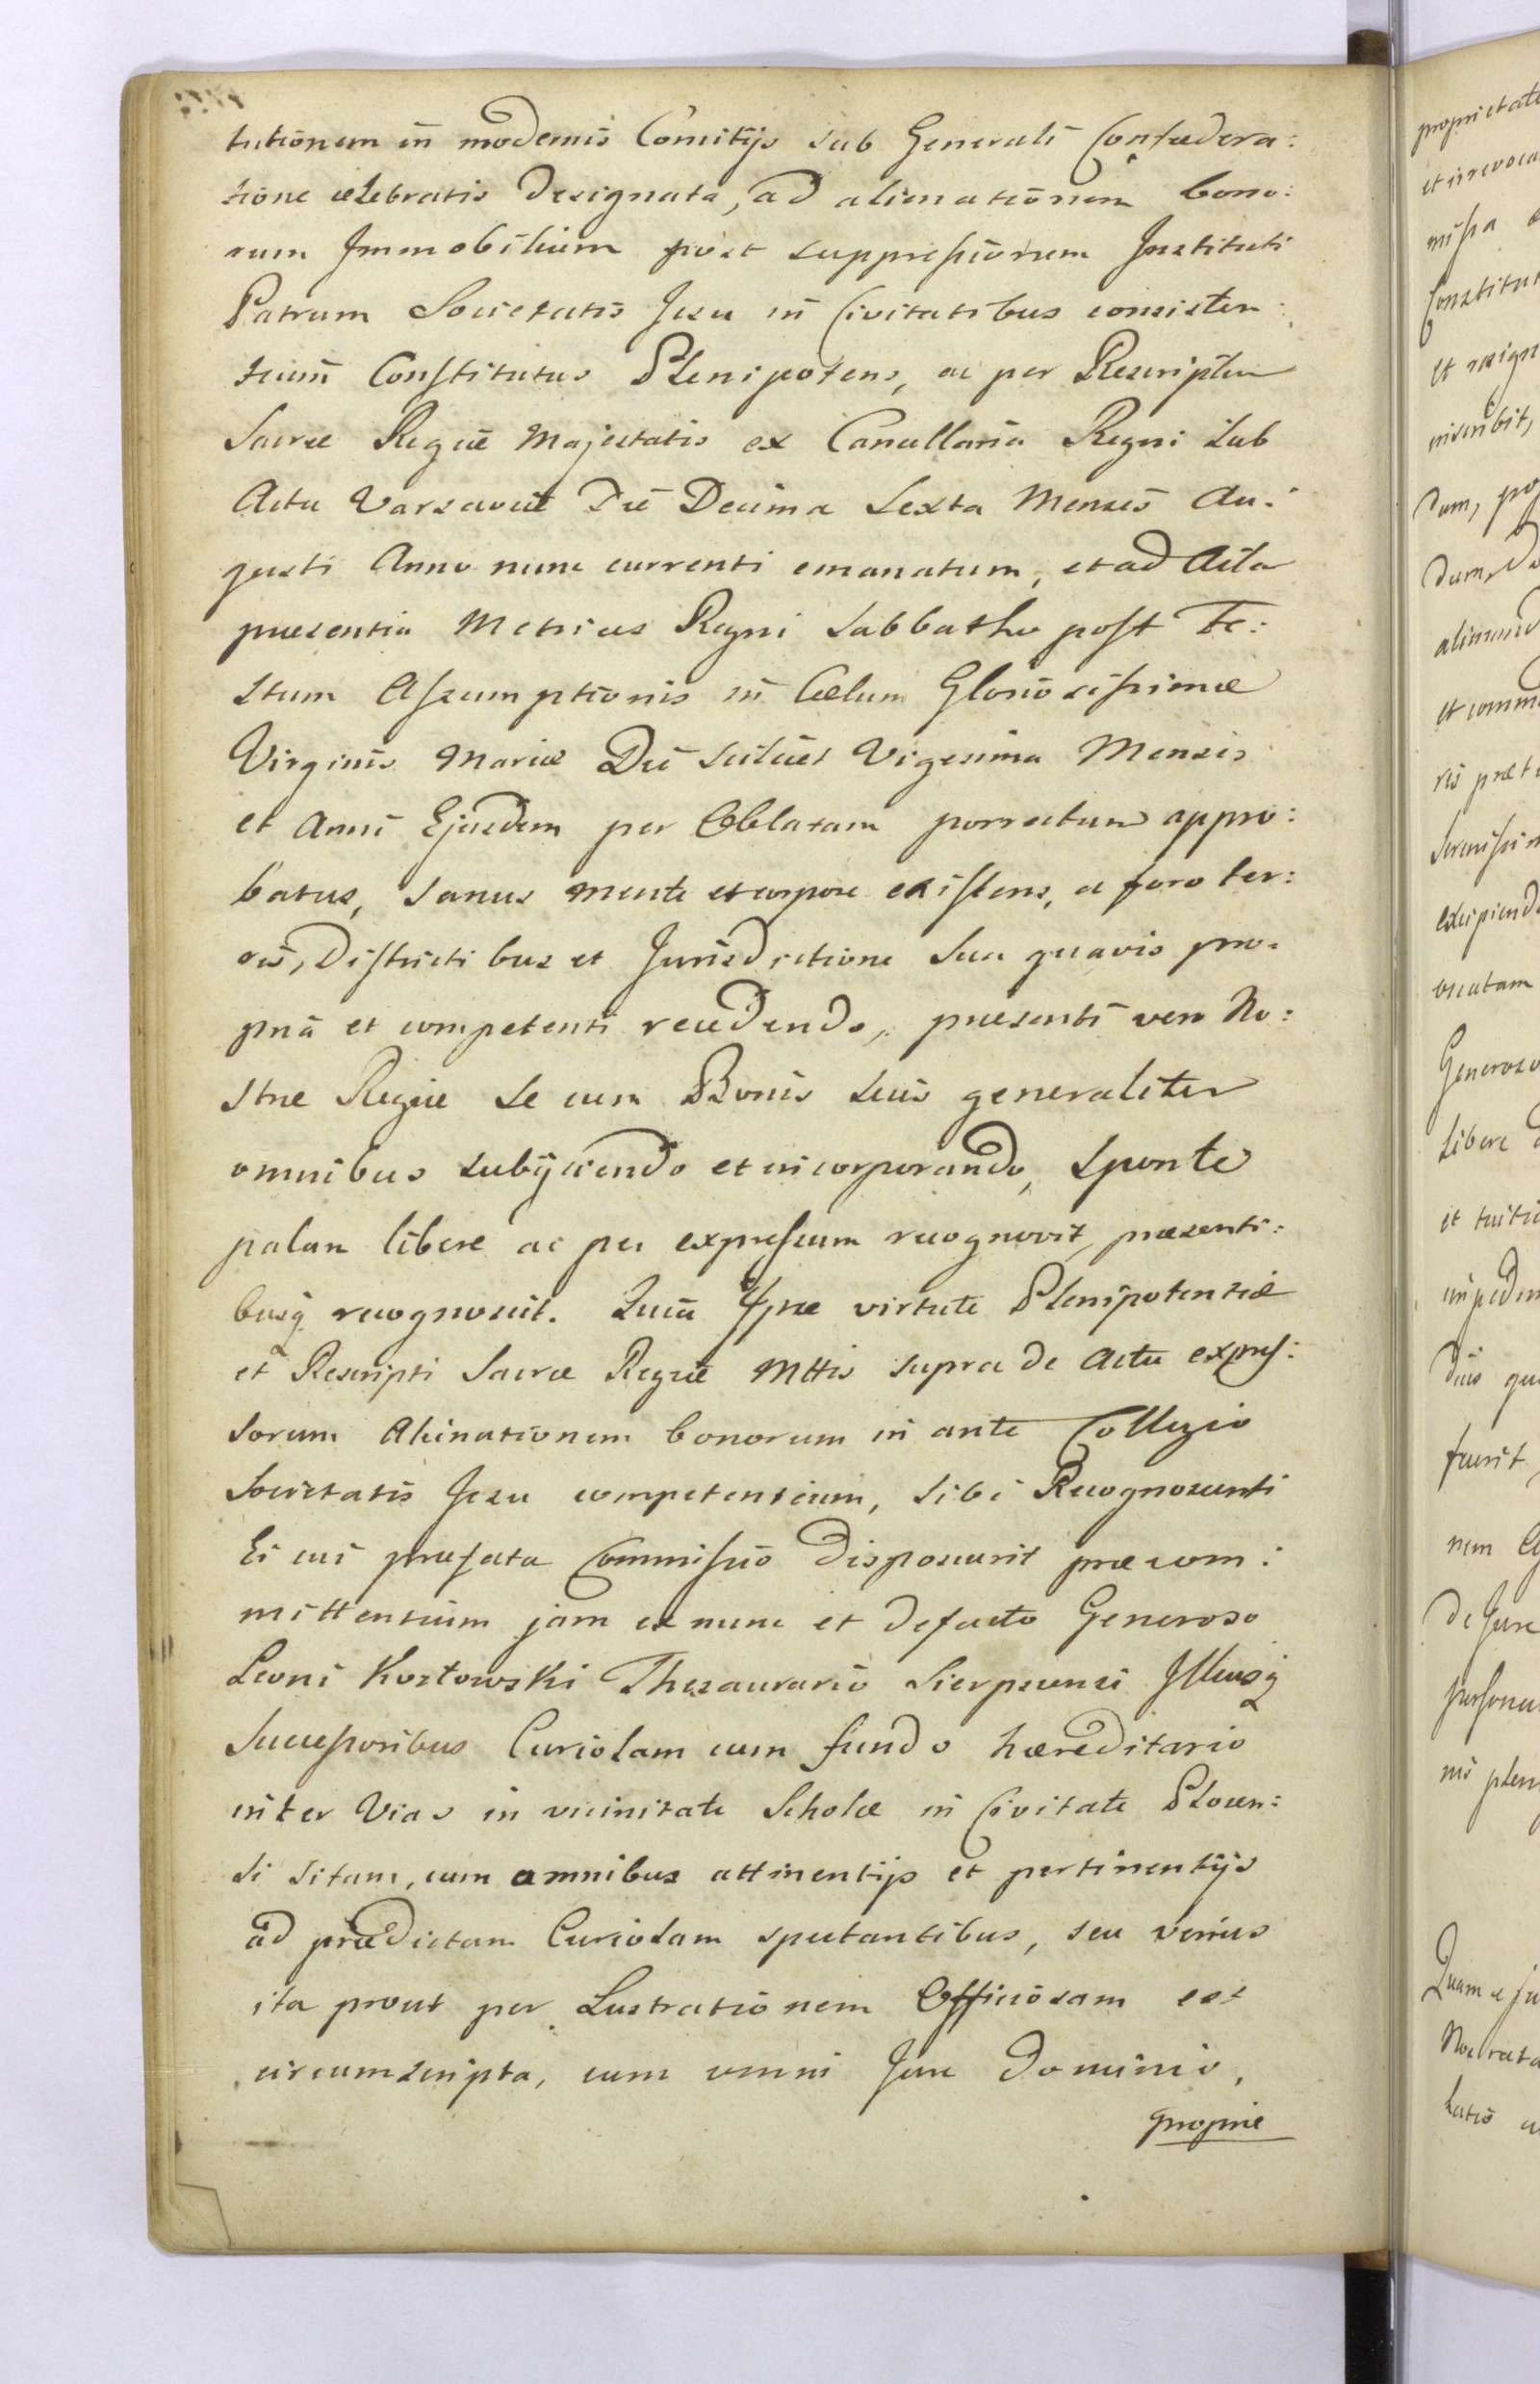 tutionem in modernis Comitijs sub Generali Confœdera:
tione celebratis designata, ad alienationem bono:
rum Immobilium post suppressionem Instituti
Patrum Societatis Jesu in Civitatibus consisten:
tium Constitutus Plenipotens, ac per Rescriptum
Sacræ Regiæ Majestatis ex Cancellaria Regni sub
Actu Varsaviæ Die Decima Sexta Mensis Au:
gusti Anno nunc currenti emanatum, et ad Acta
præsentia Metrices Regni Sabbatho post Fe:
stum Assumptionis in Cælum Gloriosissimæ
Virginis Mariæ Die scilicet Vigesima Mensis
et Anni Ejusdem per Oblatam porrectum appro:
batus, sanus mente et corpore existens, a foro ter:
ris, Districtibus et Jurisdictione sua quavis pro:
pria et competenti recedendo, præsenti vero No:
stræ Regiæ se cum Bonis suis generaliter
omnibus subijciendo et incorporando, sponte
palam libere ac per expressum recognovit, præsenti:
busq recognoscit. Quia Ipse virtute Plenipotentiæ
et Rescripti Sacræ Regiæ Mttis supra de Actu expres:
sorum Alienationem bonorum in ante Collegio
Societatis Jesu competentium, sibi Recognoscenti
Ei cui præfata Commissio disposuerit præcom:
mittentium jam ex nunc et defacto Generoso
Leoni Kozłowski Thesaurario Sierpscensi Illiusq
Successoribus Curiolam cum fundo hæreditario
inter Vias in vicinitate Scholæ in Civitate Plocen:
si sitam, cum omnibus attinentijs et pertinentijs
ad prædictam Curiolam spectantibus, seu verius
ita prout per Lustrationem Officiosam est
circumscripta, cum omni Jure Dominio,
proprie
proprietate
et irrevoca
missa
Constitut
et resign
inscribit,
dum, pos
dum,
et comm
ris præt
Serenissim
excipiend
Generoso
libere
et tuitio
impedim
fuerit
nem
de Jure
persona
nis plen